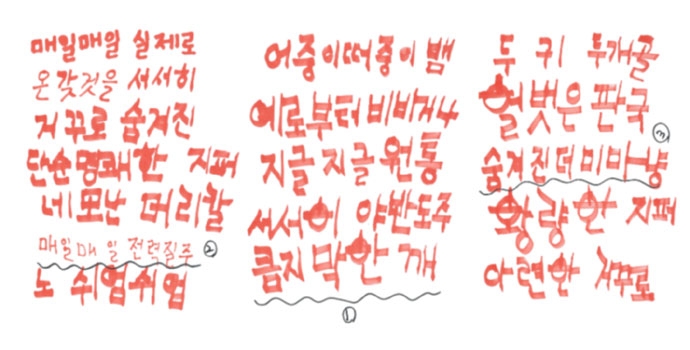 매일매일 실제로
온갖것을 서서히
거꾸로 숨겨진
단순명쾌한 지퍼
네모난 머리칼
매일매일 전력질주 ②
노 쉬업쉬업
어중이떠중이 뱀
예로부터 비비거나
지글지글 원통
서서히 야반도주
큼지막한 깨
①
두 귀 두개골
헐벗은 판국
③
숨겨진더미미냥
황량한 지퍼
아련한 거꾸로